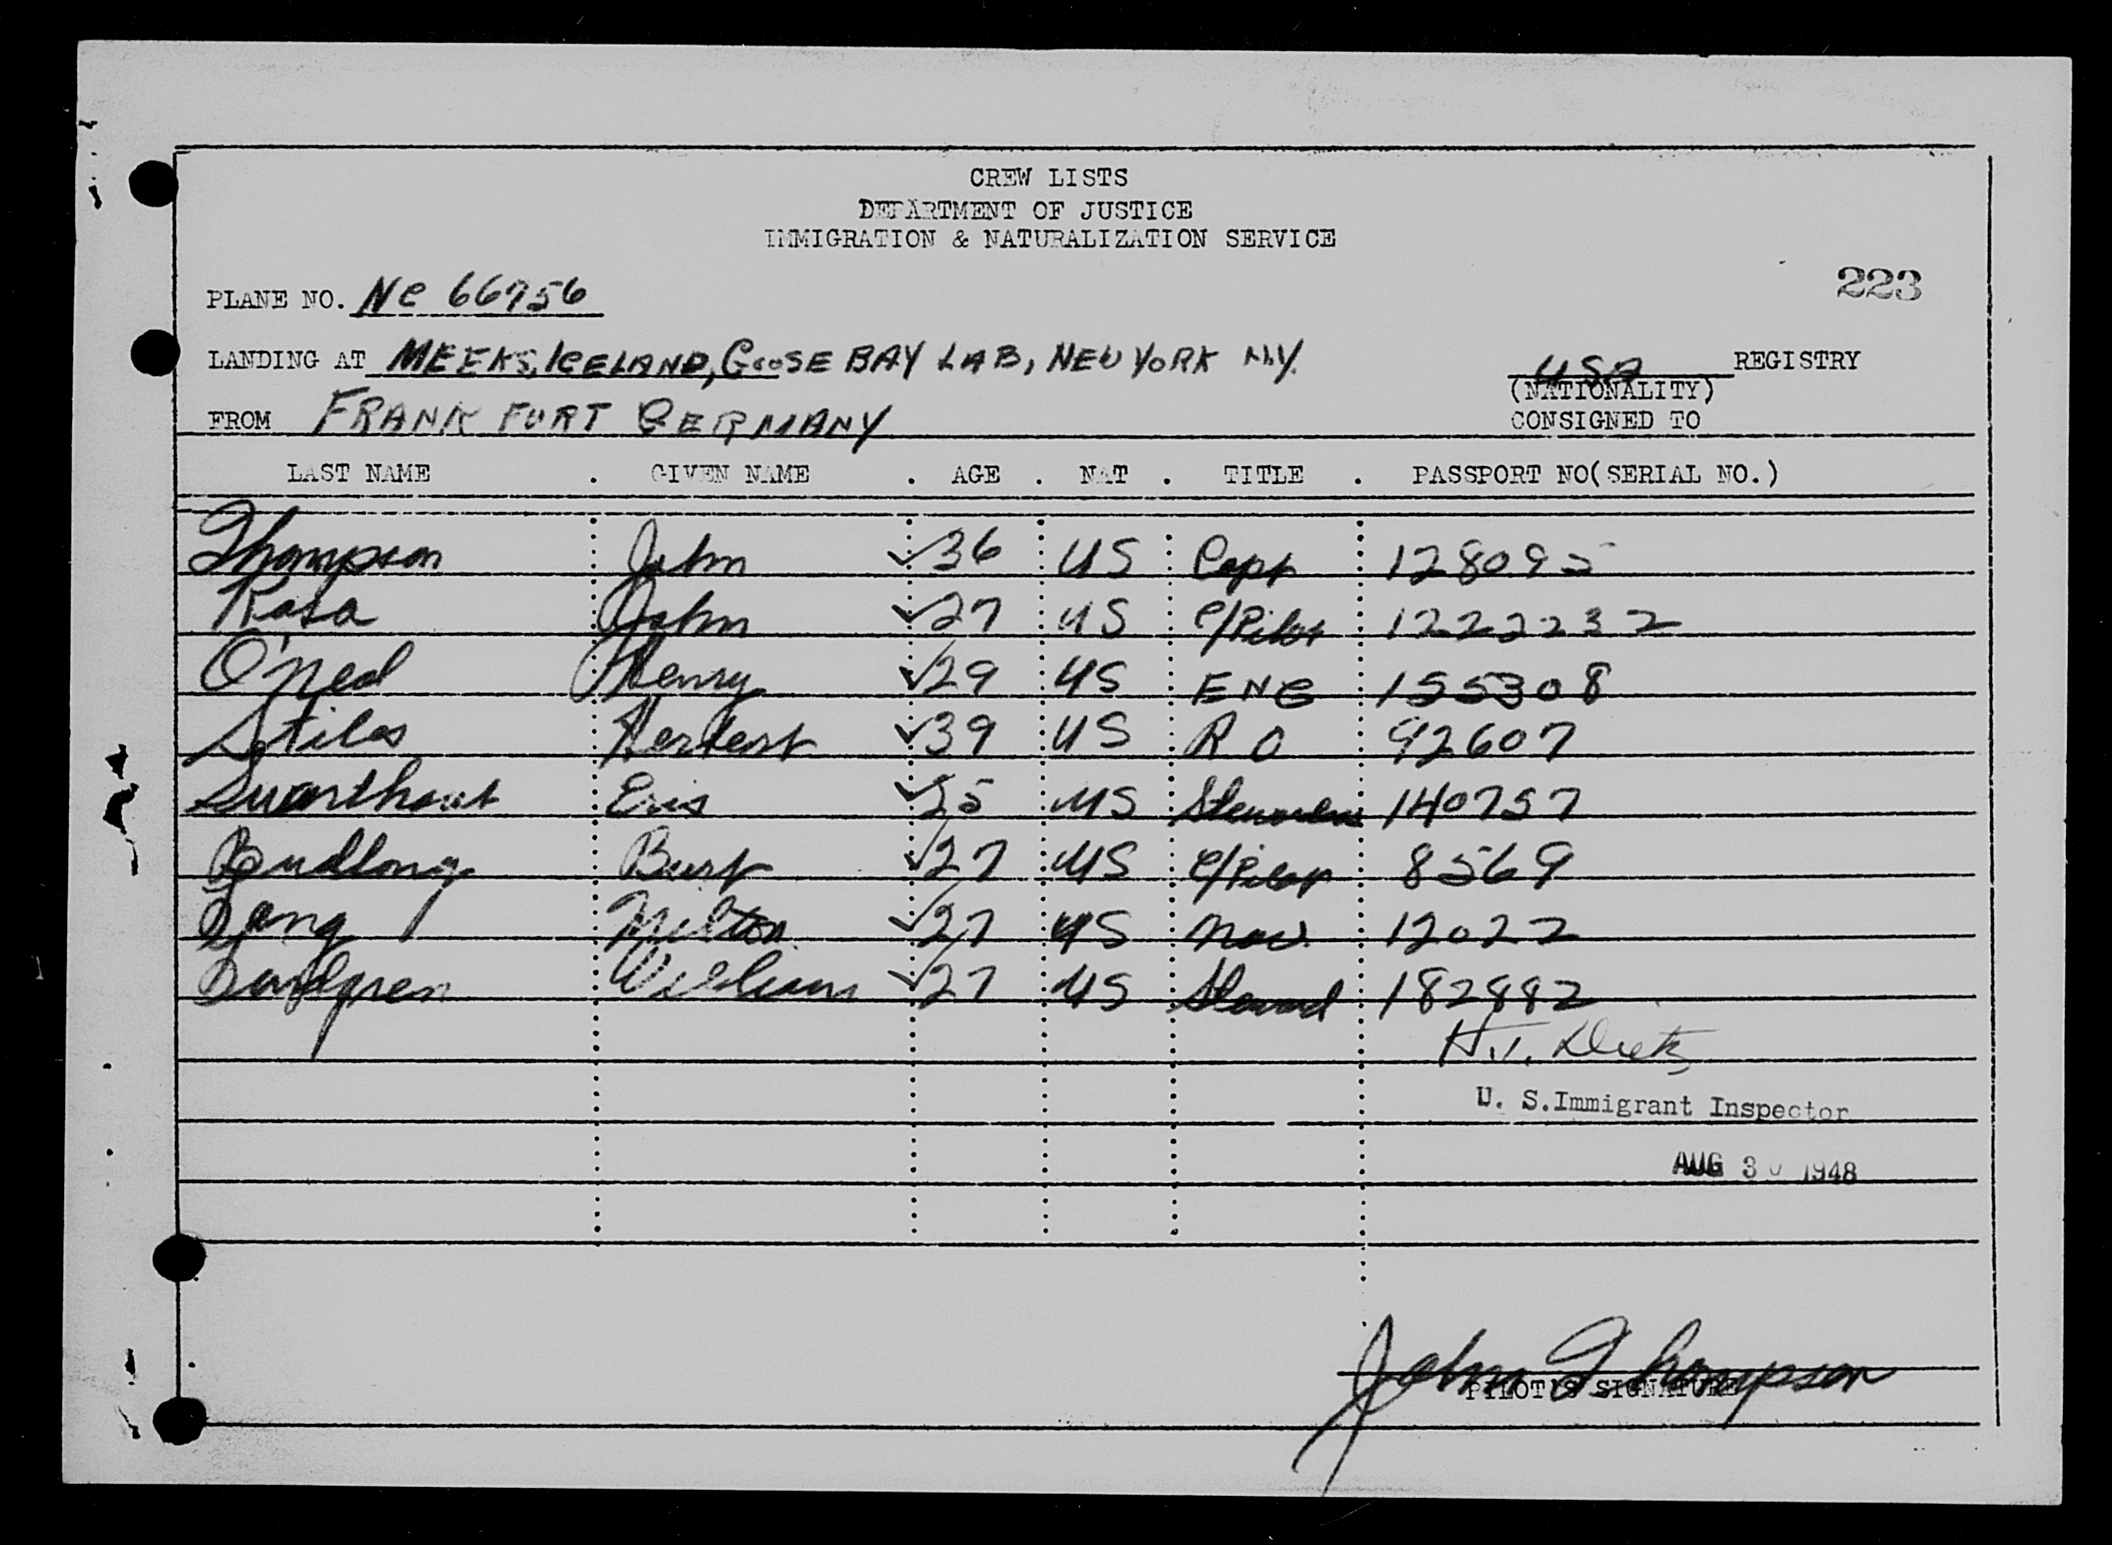 CREW LISTS
DEPARTMENT OF JUSTICE
IMMIGRATION & NATURALIZATION SERVICE
223
PLANE NO. NC 66756
LANDING AT MEEKS, ICELAND, GOOSE BAY LAB, NEW YORK N.Y. USA REGISTRY
(NATIONALITY)
FROM FRANKFURT GERMANY CONSIGNED TO
LAST NAME . GIVEN NAME . AGE . NAT . TITLE . PASSPORT NO(SERIAL NO.)
Thompson John ✓36 US Capt 128095
Rosa John ✓27 US C/Pilot 1222232
O'Neal Henry ✓29 US ENG 155308
Stiles Herbert ✓39 US R O 92607
Swarthout Eris ✓25 US Stewardess 140757
Budlong Burt ✓27 US C/Pilot 8569
Lang Milton ✓27 US Nav. 12022
William ✓27 US Steward 182882
H.J. Dietz
U. S. Immigrant Inspector
AUG 30 1948
John Thompson
PILOT'S SIGNATURE